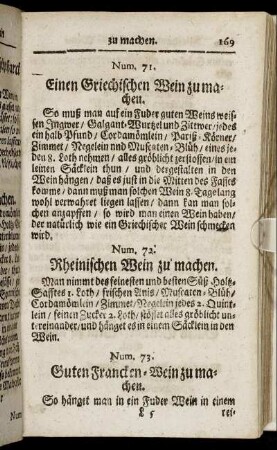 zu machen. 169
Num. 71.
Einen Griechischen Wein zu ma-
chen.
So muß man auf ein Fuder guten Weins weis-
sen Ingwer / Galgant-Wurtzel und Zittwer / jedes
ein halb Pfund / Cordamömlein / Pariß-Körner /
Zimmet / Negelein und Muscaten-Blüh / eines je-
den 8. Loth nehmen / alles gröblicht zerstossen / in ein
leinen Säcklein thun / und dergestalten in den
Wein hängen / daß es just in die Mitten des Fasses
komme / dann muß man solchen Wein 8. Tage lang
wohl verwahret liegen lassen / dann kan man sol-
chen anzapffen / so wird man einen Wein haben /
der natürlich wie ein Griechischer Wein schmecken
wird.
Num. 72.
Rheinischen Wein zu machen.
Man nimmt des feinesten und besten Süß-Holtz-
Safftes 1. Loth / frischen Anis / Muscaten-Blüh /
Cordamömlein / Zimmet / Negelein jedes 2. Quint-
lein / feinen Zucker 2. Loth / stösset alles gröblicht un-
tereinander / und hänget es in einem Säcklein in den
Wein.
Num. 73.
Guten Francken-Wein zu ma-
chen.
So hänget man in ein Fuder Wein in einem
L 5 rei-